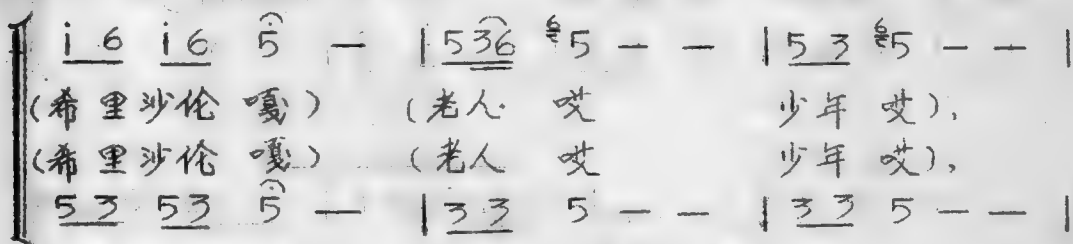 i 6 i 6 5 — | 5 3 6 6 5 — — | 5 3 6 5 — — |
(希里沙伦 嘎) (老人 哎 少年 哎),
(希里沙伦 嘎) (老人 哎 少年 哎),
5 3 5 3 5 — | 3 3 5 — — | 3 3 5 — — |